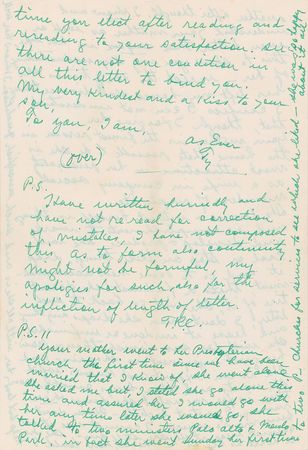 time you elect after reading and
rereading to your satisfaction. see
there are not one condition in
all this letter to bind you.
My very kindest and a kiss to your
son,
To you, I am,
as Ever
(over)
P.S.
I have written hurriedly and
have not re-read for correction
of mistakes, I have not composed
this, as to form also continuity
might not be formful, my
apologies for such, also for the
infliction of length of letter.
P.S. 11
Your mother went to her Presbyterian
church, the first time since we have been
married that I know of, she went alone
she asked me but I stated she go alone this
time and assured her I would go with
her any time later she would go, she
talked to two ministers Palo Alto & Menlo
Park, in fact she went Sunday her first time
churches for services to see which she liked
about it all